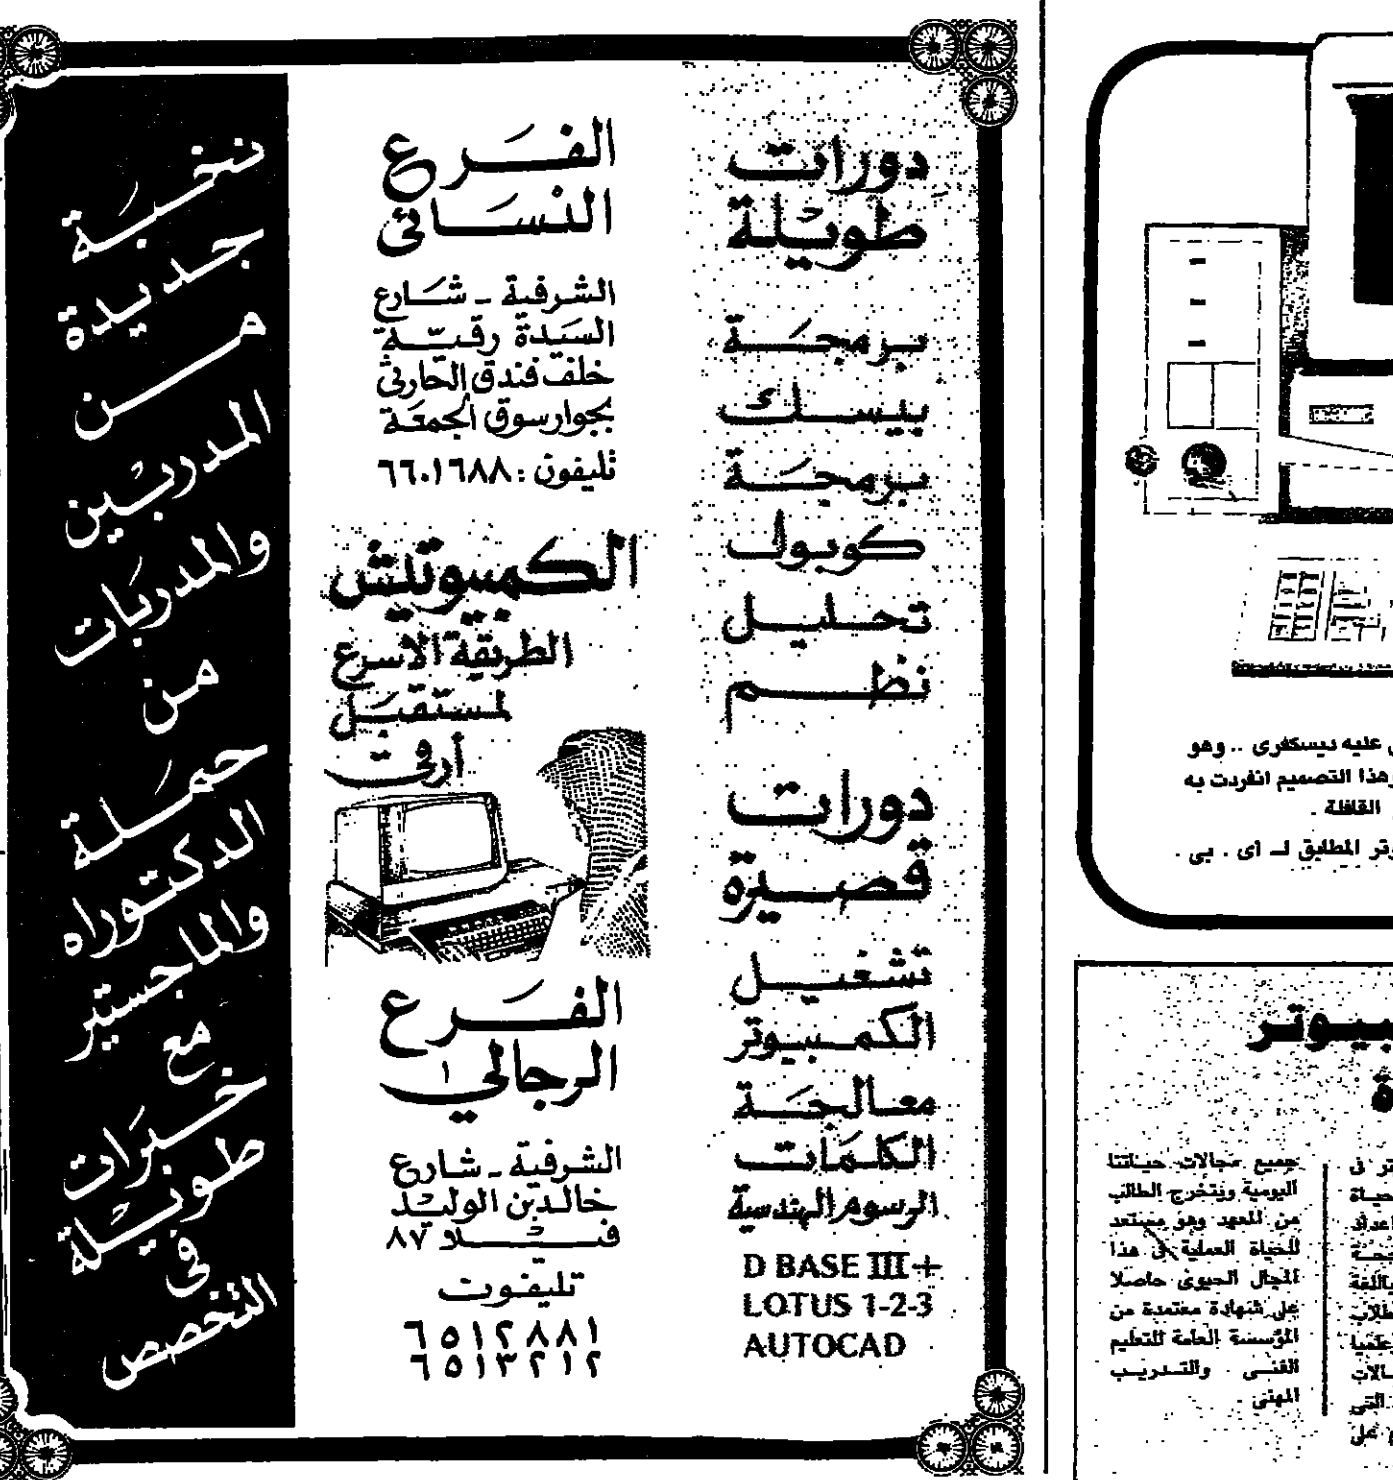 دورات
طويلة
برمجة
بيسك
برمجة
كوبول
تحليل
نظم
دورات
قصيرة
تشغيل
الكمبيوتر
معالجة
الكلمات
الرسوم الهندسية
D BASE III+
LOTUS 1-2-3
AUTOCAD
الفرع
النسائى
الشرفية - شارع
السيدة رقية
خلف فندق الحارثى
بجوار سوق الجمعة
تليفون : ٦٦٠١٦٨٨
الكمبيوتش
الطريقة الاسرع
لمستقبل
أرقى
الفرع
الرجالي ١
الشرفية - شارع
خالد بن الوليد
فيلا ٨٧
تليفون
٦٥١٢٨٨١
٦٥١٣٢١٢
نخبة
جديدة
من
المدربين
والمدربات
من
حملة
الدكتوراه
والماجستير
مع
خبرات
طويلة
فى
التخصص
عليه ديسكفرى .. وهو
وهذا التصميم انفردت به
القافلة .
المطابق لـ اى . بى .
جميع مجالات حياتنا
اليومية ويتخرج الطالب
من المعهد وهو مستعد
للحياة العملية فى هذا
المجال الحيوى حاصلا
على شهادة معتمدة من
المؤسسة العامة للتعليم
الفنى والتدريب
المهنى .